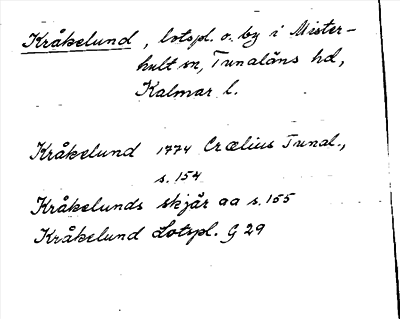 Kråkelund, lotspl. o. by i Mister-
hult sn, Tunaläns hd,
Kalmar l.
Kråkelund 1774 Crælius Tunal.,
s. 154
Kråkelunds skjär aa s. 155
Kråkelund Lotspl. G 29